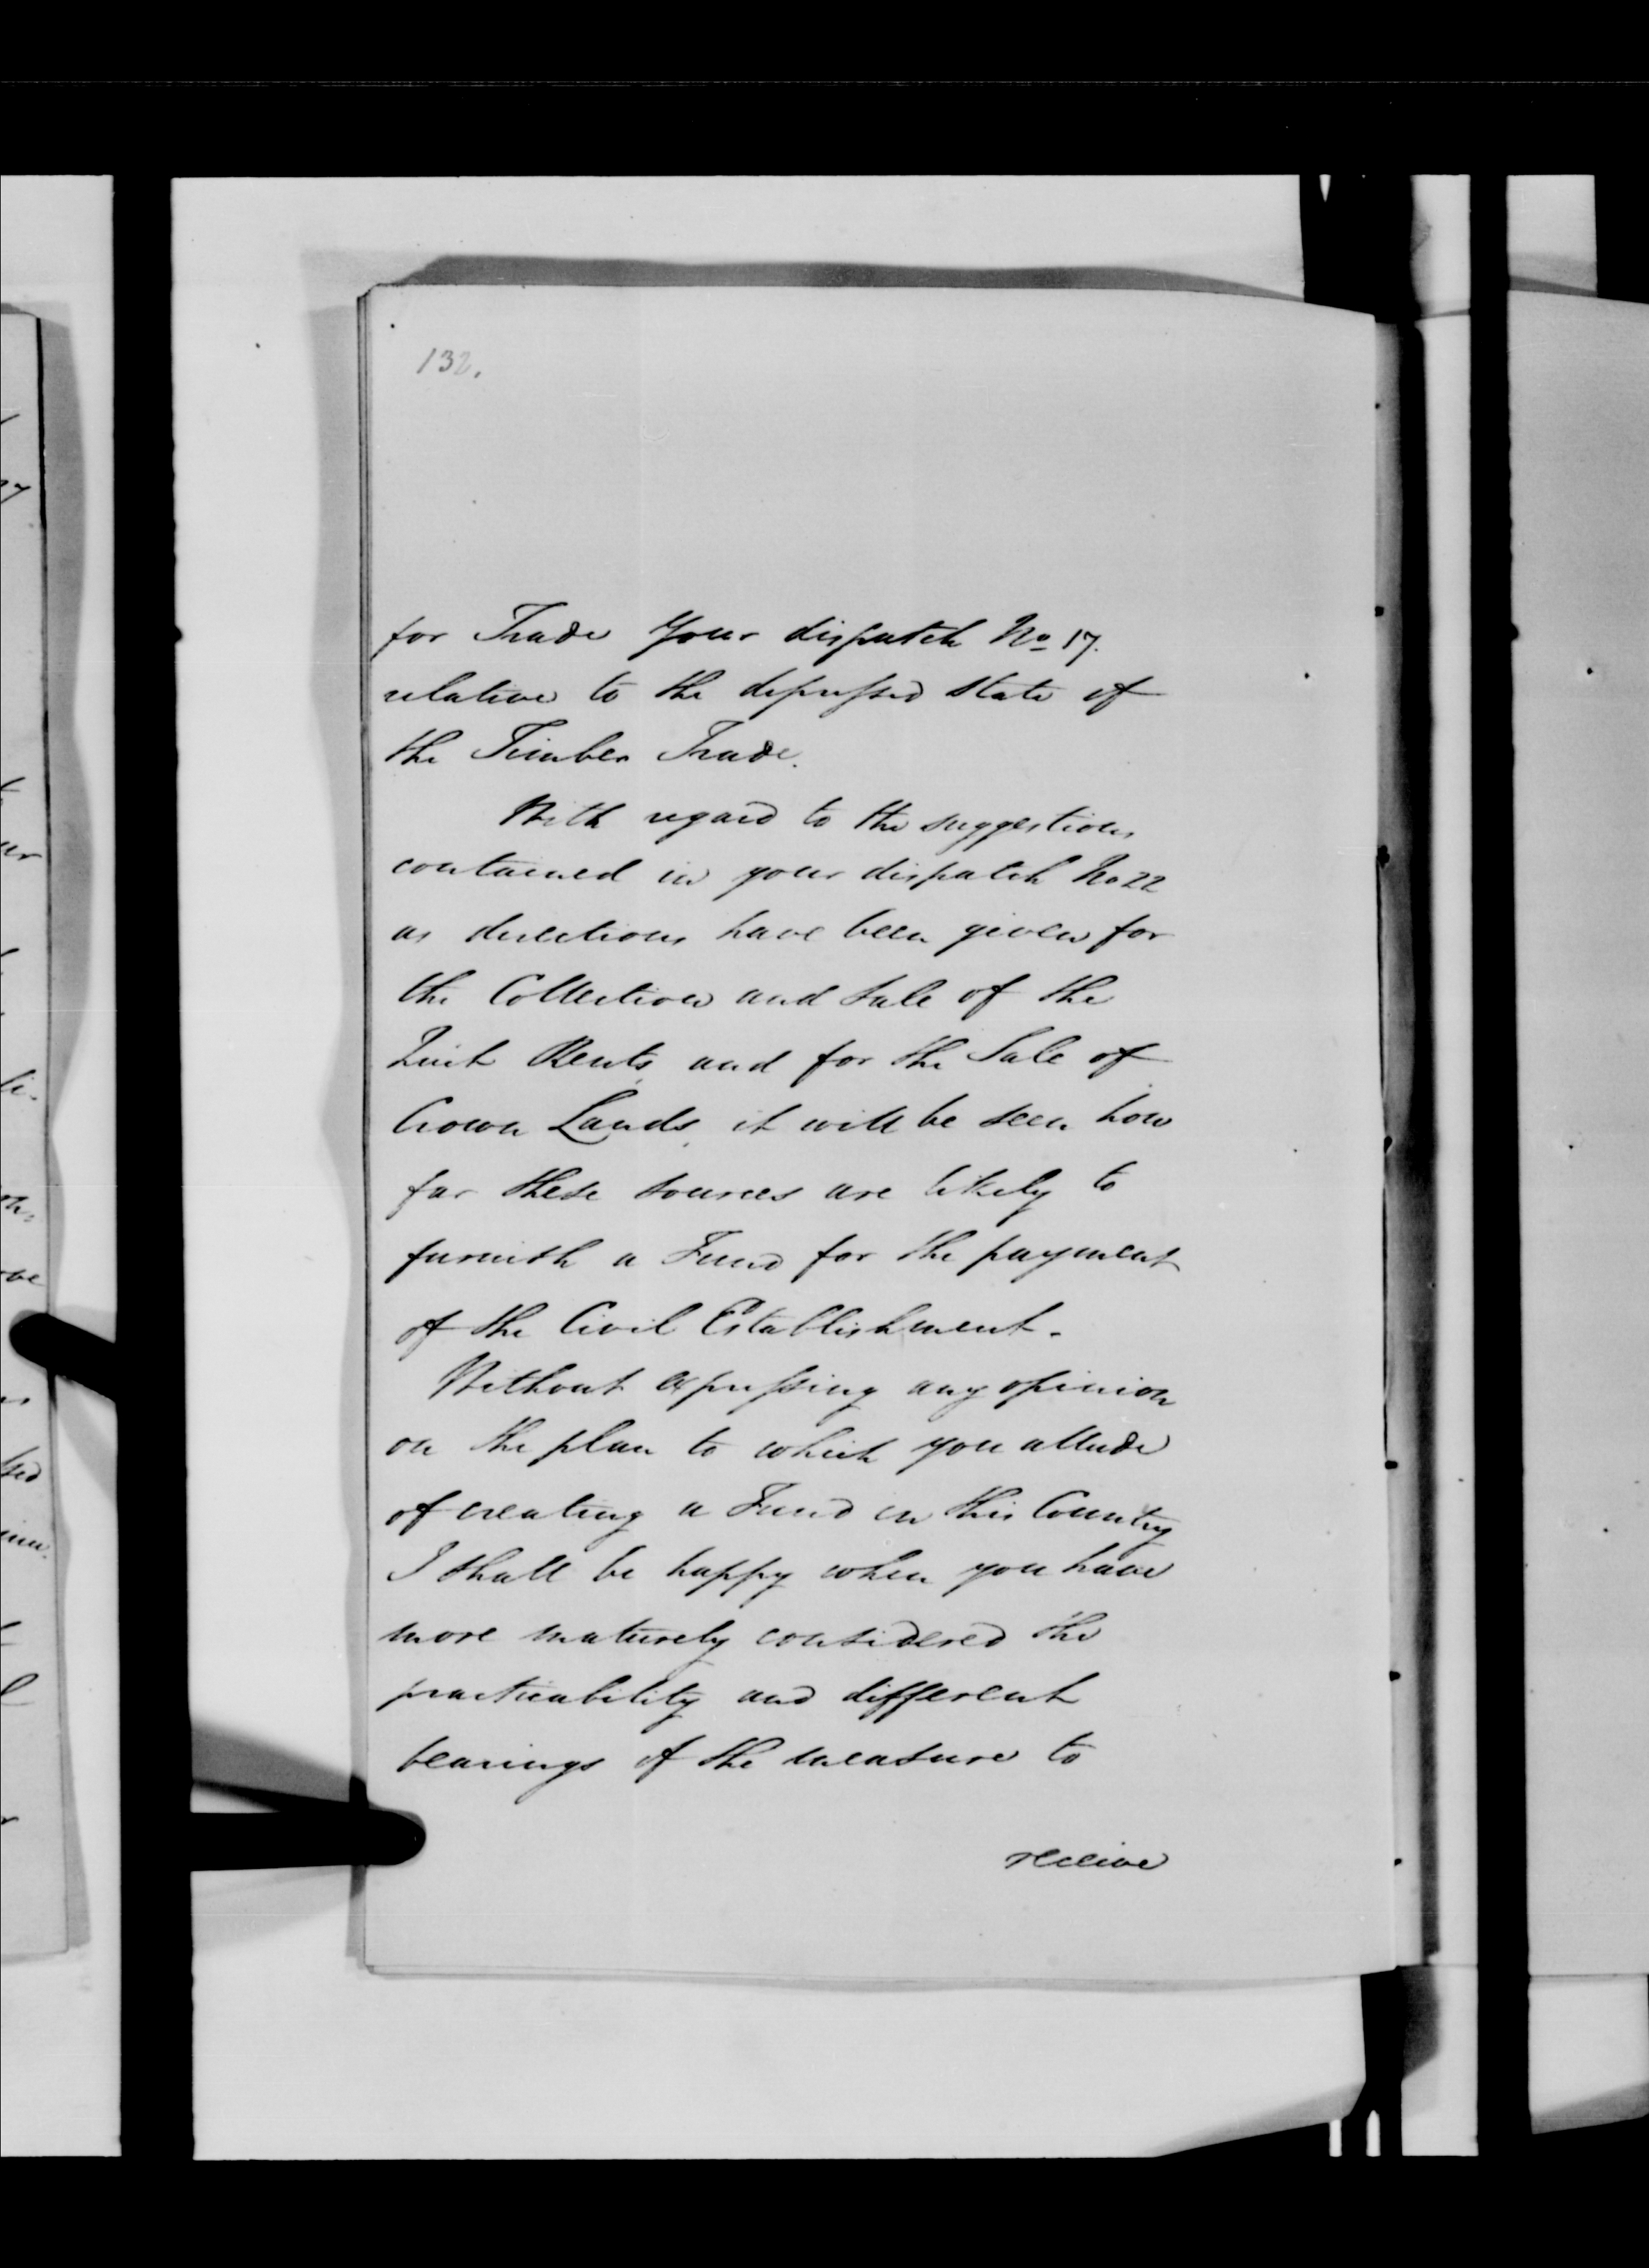 132.
for Trade Your dispatch No 17.
relative to the depressed state of
the Timber Trade.
With regard to the suggestions
contained in your dispatch No 22
as directions have been given for
the Collection and Sale of the
Quit Rents, and for the Sale of
Crown Lands, it will be seen how
far these sources are likely to
furnish a Fund for the payment
of the Civil Establishment.
Without expressing any opinion
on the plan to which you allude
of creating a Fund in this Country
I shall be happy when you have
more maturely considered the
practicability and different
bearings of the measure to
receive